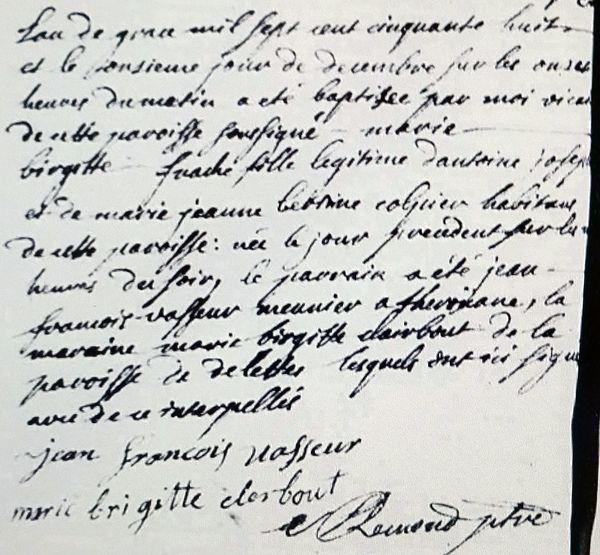 Lan de grace mil sept cent cinquante huit
et le onsieme jour de decembre sur les onze
heures du matin a été baptisée par moi vicai
de cette paroisse soussigné - marie
birgitte fille legitime dantoine joseph
et de marie jeanne habitans
de cette paroisse: née le jour precedent sur les
heures du soir, le parrain a été jean
francois vasseur meunier a therouane, la
maraine marie birgitte clairbout de la
paroisse de delettes lesquels ont ici signé
avec de ce interpellés
jean françois vasseur
marie brigitte clerbout
ptre